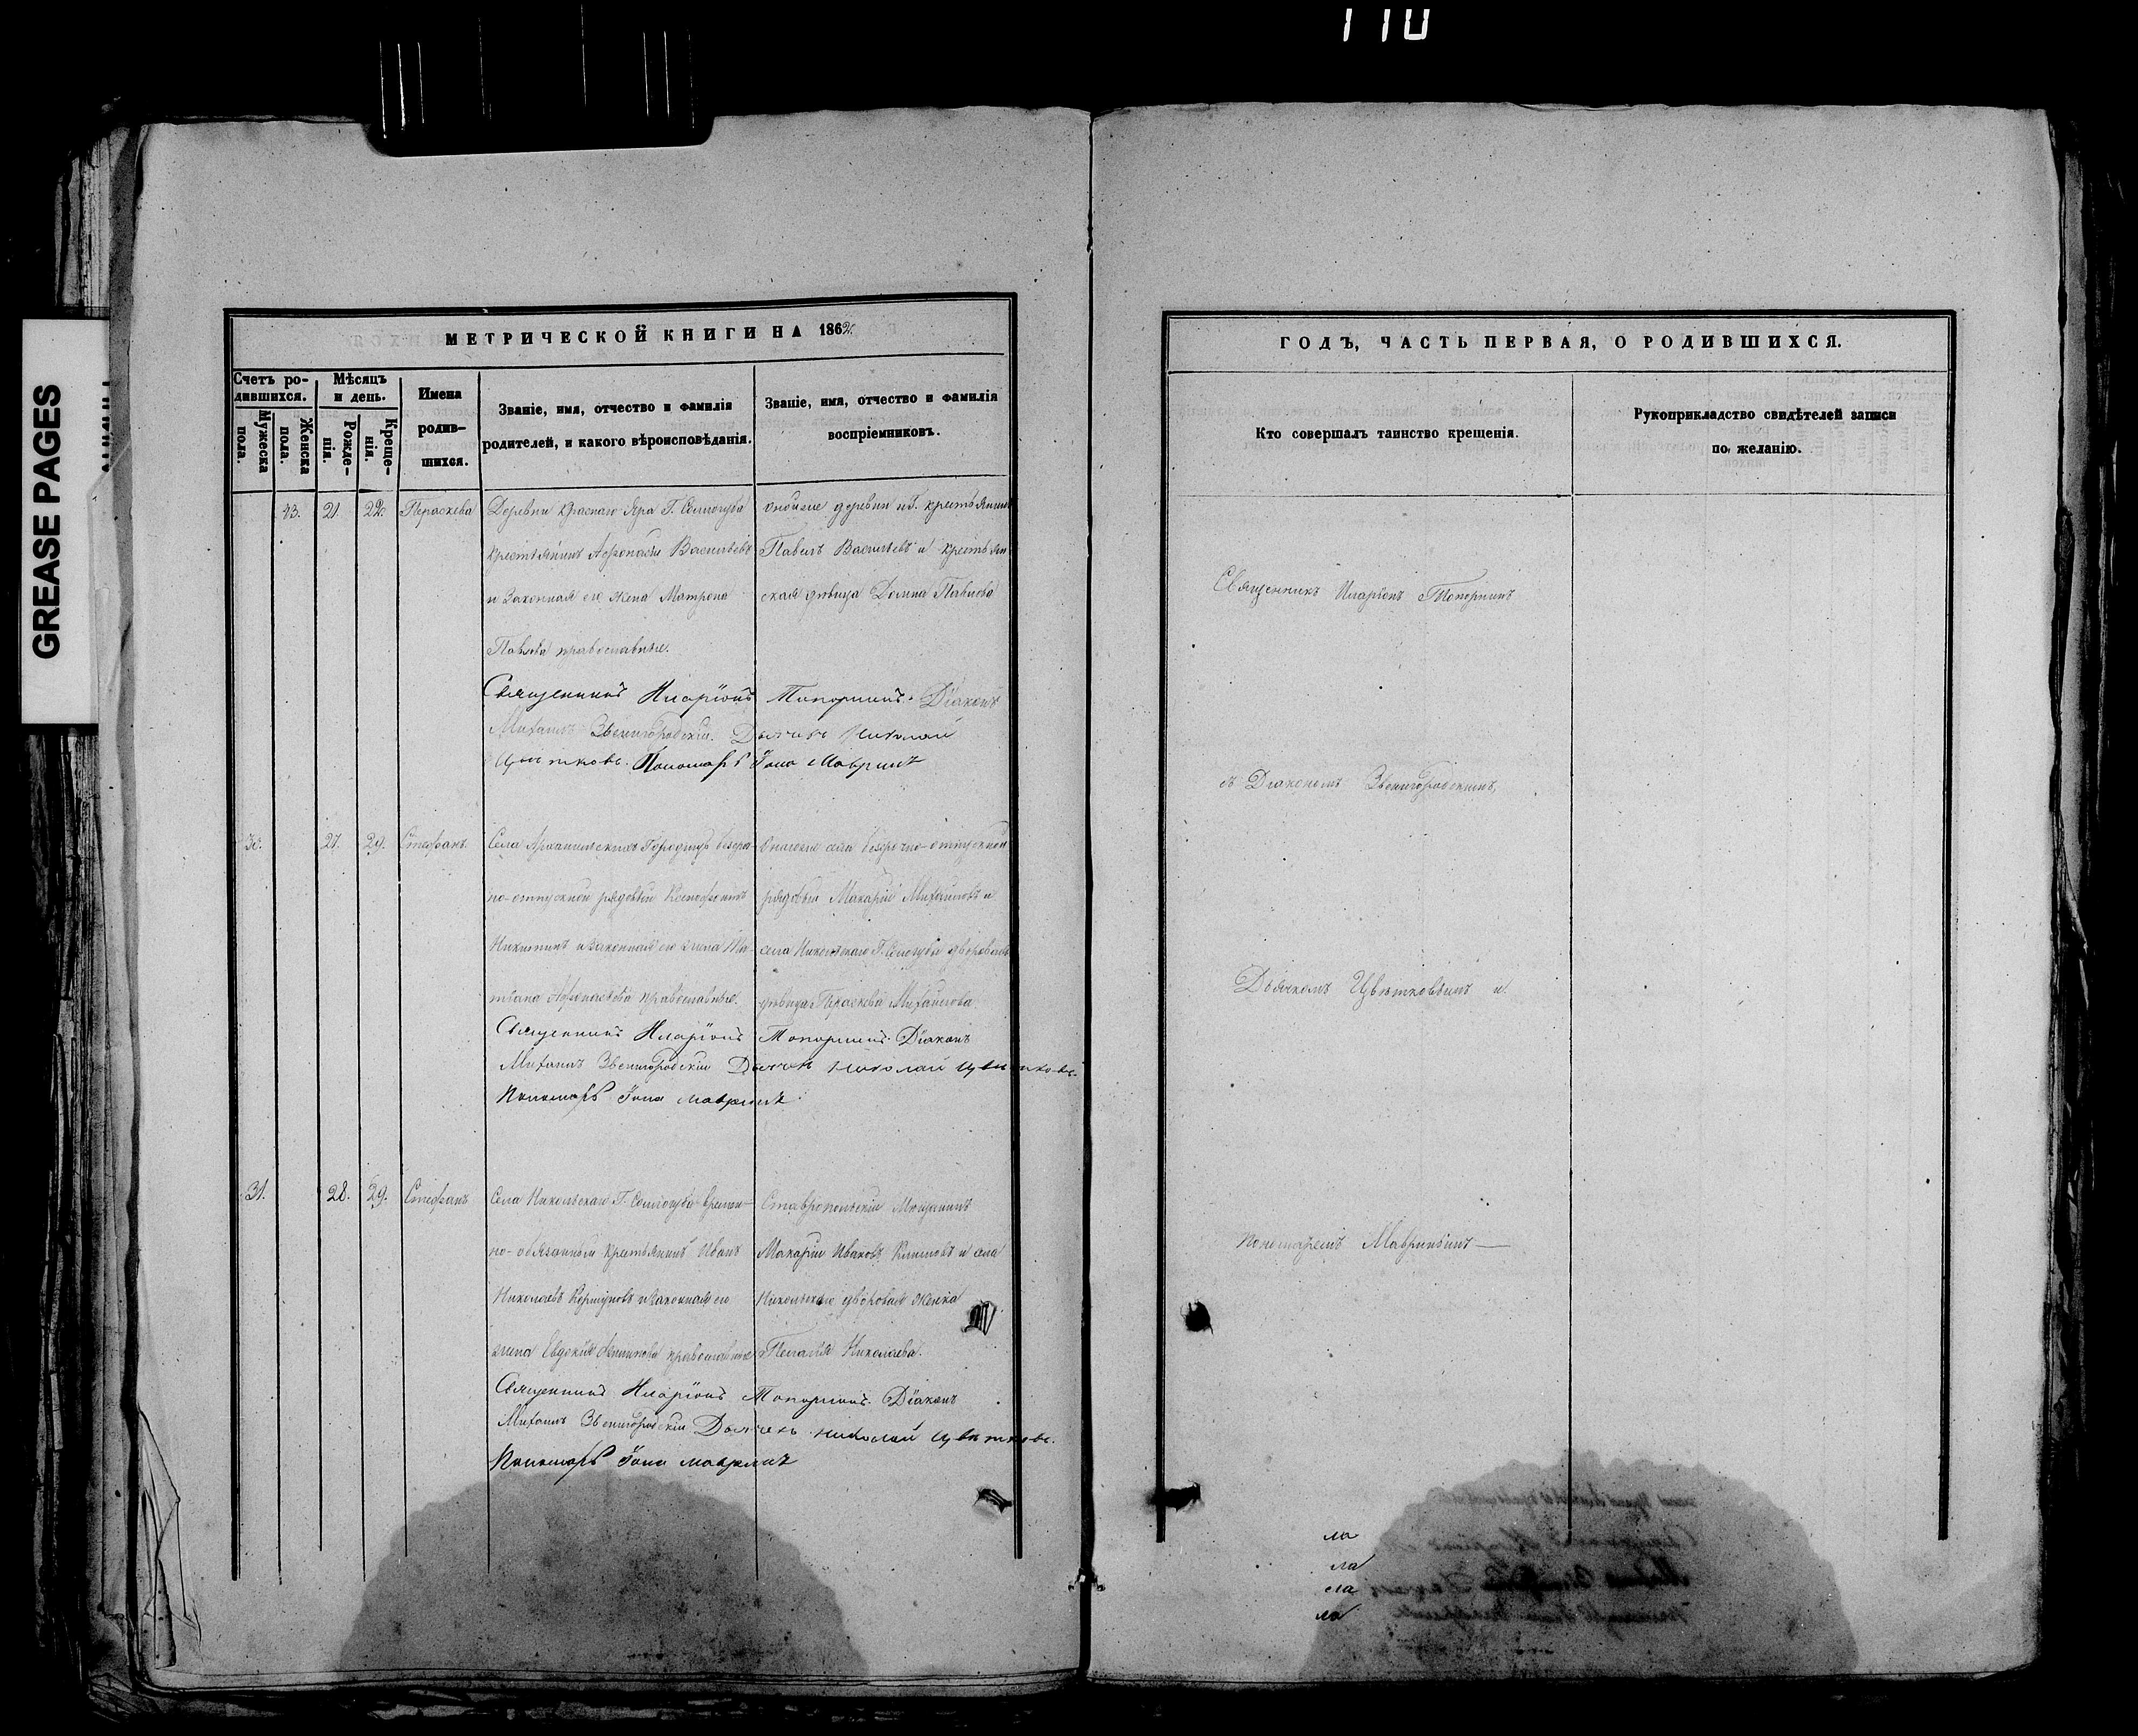 110
GREASE PAGES
МЕТРИЧЕСКОЙ КНИГИ НА 1862
Счетъ ро-
дившихся.
Мужеска
пола.
Женска
пола.
Мѣсяцъ
и день.
Рожде-
нія.
Креще-
нія.
Имена
родив-
шихся.
Званіе, имя, отчество и фамилія
родителей, и какого вѣроисповѣданія.
Званіе, имя, отчество и фамилія
воспріемниковъ.
43. 21. 22. Параскева
Деревни Краснаго Яра Г.
крестьянинъ Афонасій Васильевъ
и законная его жена Матрона
Павлова православные.
оной же деревни и Г. крестьянинъ
Павелъ Васильевъ и крестьян
ская дѣвица Домна Павлова
Священникъ Иларіонъ Топорнинъ. Діаконъ
Михаилъ Звенигородскій. Дьячекъ Николай
Цвѣтковъ. Пономарь Іона Мавринъ
30. 27. 29. Стефанъ.
Села Архангельскихъ Городищъ безсро-
чно-отпускной рядовый Ксенофонтъ
Никитинъ и законная его жена Та-
тіана Афонасьева православные.
Онаго же села безсрочно-отпускной
рядовый Макарій Михайловъ и
села Никольскаго Г. дворовая
дѣвица Параскева Михайлова
Священникъ Иларіонъ Топорнинъ. Діаконъ
Михаилъ Звенигородскій Дьячекъ Николай Цвѣтковъ.
Пономарь Іона Мавринъ.
31. 28. 29. Стефанъ
Села Никольскаго Г. времен-
но-обязанный крестьянинъ Иванъ
Николаевъ Коршуновъ и законная его
жена Евдокія православные
Ставропольскій Мѣщанинъ
Макарій Ивановъ Климовъ и села
Никольскаго дворовая женка
Пелагія Николаева.
Священникъ Иларіонъ Топорнинъ. Діаконъ
Михаилъ Звенигородскій Дьячекъ Николай Цвѣтковъ.
Пономарь Іона Мавринъ
ГОДЪ, ЧАСТЬ ПЕРВАЯ, О РОДИВШИХСЯ.
Кто совершалъ таинство крещенія.
Рукоприкладство свидѣтелей записи
по желанію.
Священникъ Иларіонъ Топорнинъ
съ Діакономъ Звенигородскимъ,
Дьячкомъ Цвѣтковымъ и
Пономаремъ Мавринымъ —
ла
ла
ла
ла